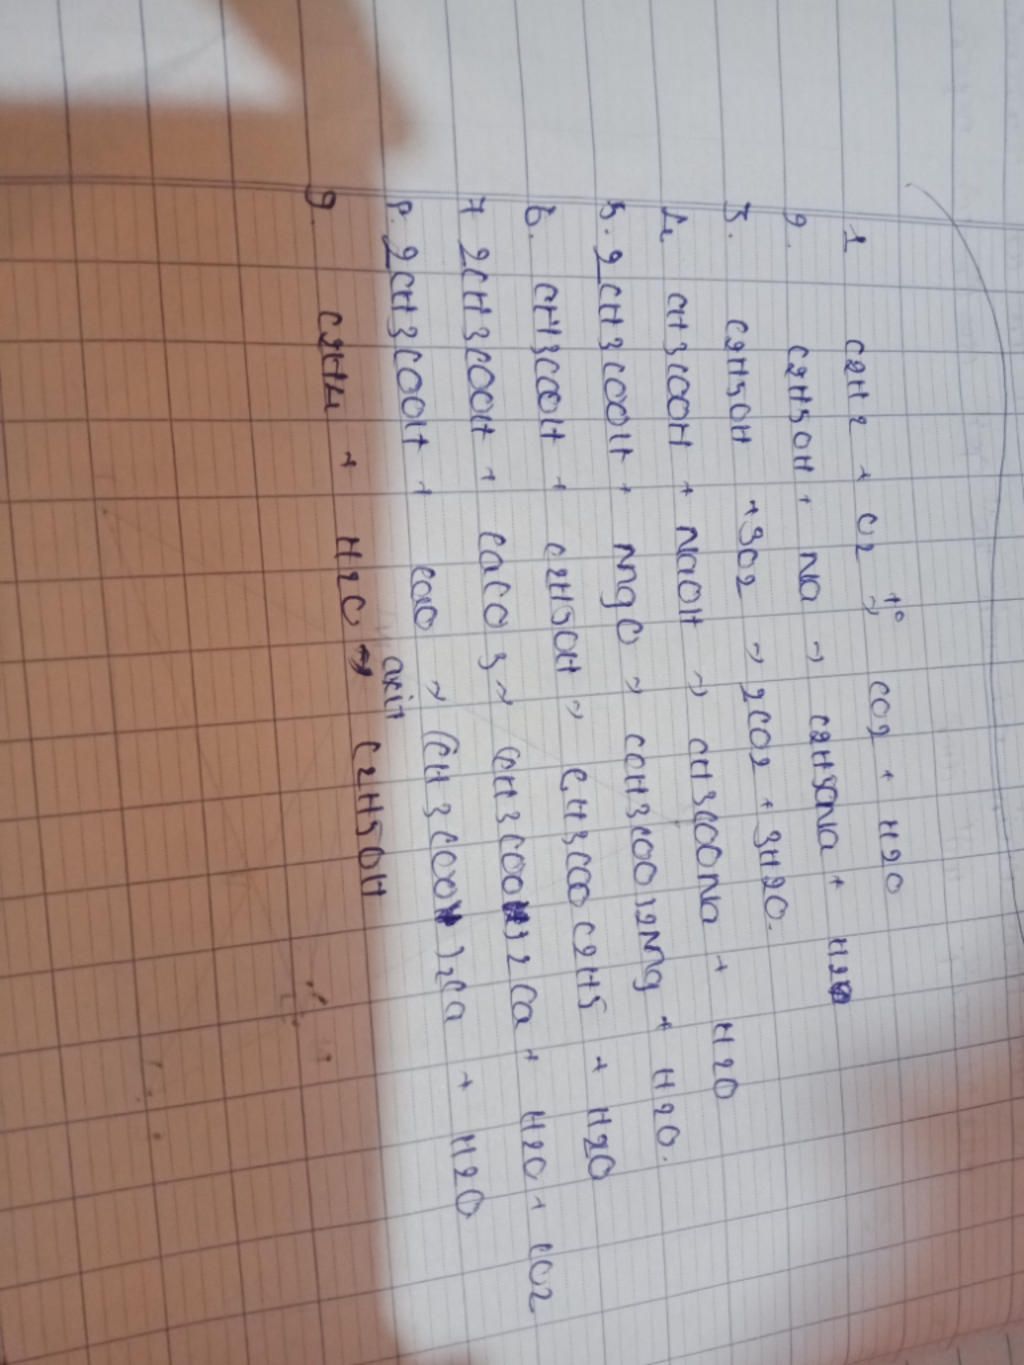 1 C2H2 + O2 t° → CO2 + H2O
2. C2H5OH + Na → C2H5ONa + H2
3. C2H5OH + 3O2 → 2CO2 + 3H2O.
4. CH3COOH + NaOH → CH3COONa + H2O
5. 2CH3COOH + MgO → (CH3COO)2Mg + H2O.
6. CH3COOH + C2H5OH → CH3COOC2H5 + H2O
7 2CH3COOH + CaCO3 → (CH3COO)2Ca + H2O + CO2
8. 2CH3COOH + CaO → (CH3COO)2Ca + H2O
9. C2H4 + H2O axit → C2H5OH